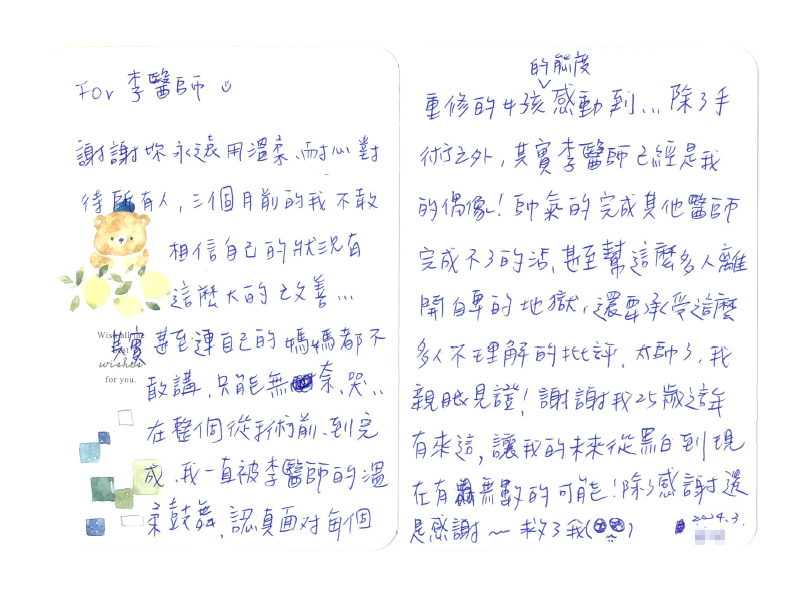 For 李醫師
謝謝妳永遠用溫柔、耐心對
待所有人，三個月前的我不敢
相信自己的狀況有
這麼大的改善…
其實甚至連自己的媽媽都不
敢講，只能無奈、哭…
在整個從手術前、到完
成、我一直被李醫師的溫
柔鼓舞，認真面對每個
Wish all the
wishes
for you.
的態度
重修的女孩感動到… 除了手
術之外，其實李醫師已經是我
的偶像！帥氣的完成其他醫師
完成不了的活，甚至幫這麼多人離
開自卑的地獄，還要承受這麼
多人不理解的批評，太帥了，我
親眼見證！謝謝我25歲這年
有來這，讓我的未來從黑白到現
在有無數的可能！除了感謝還
是感謝～救了我()
2024.3.